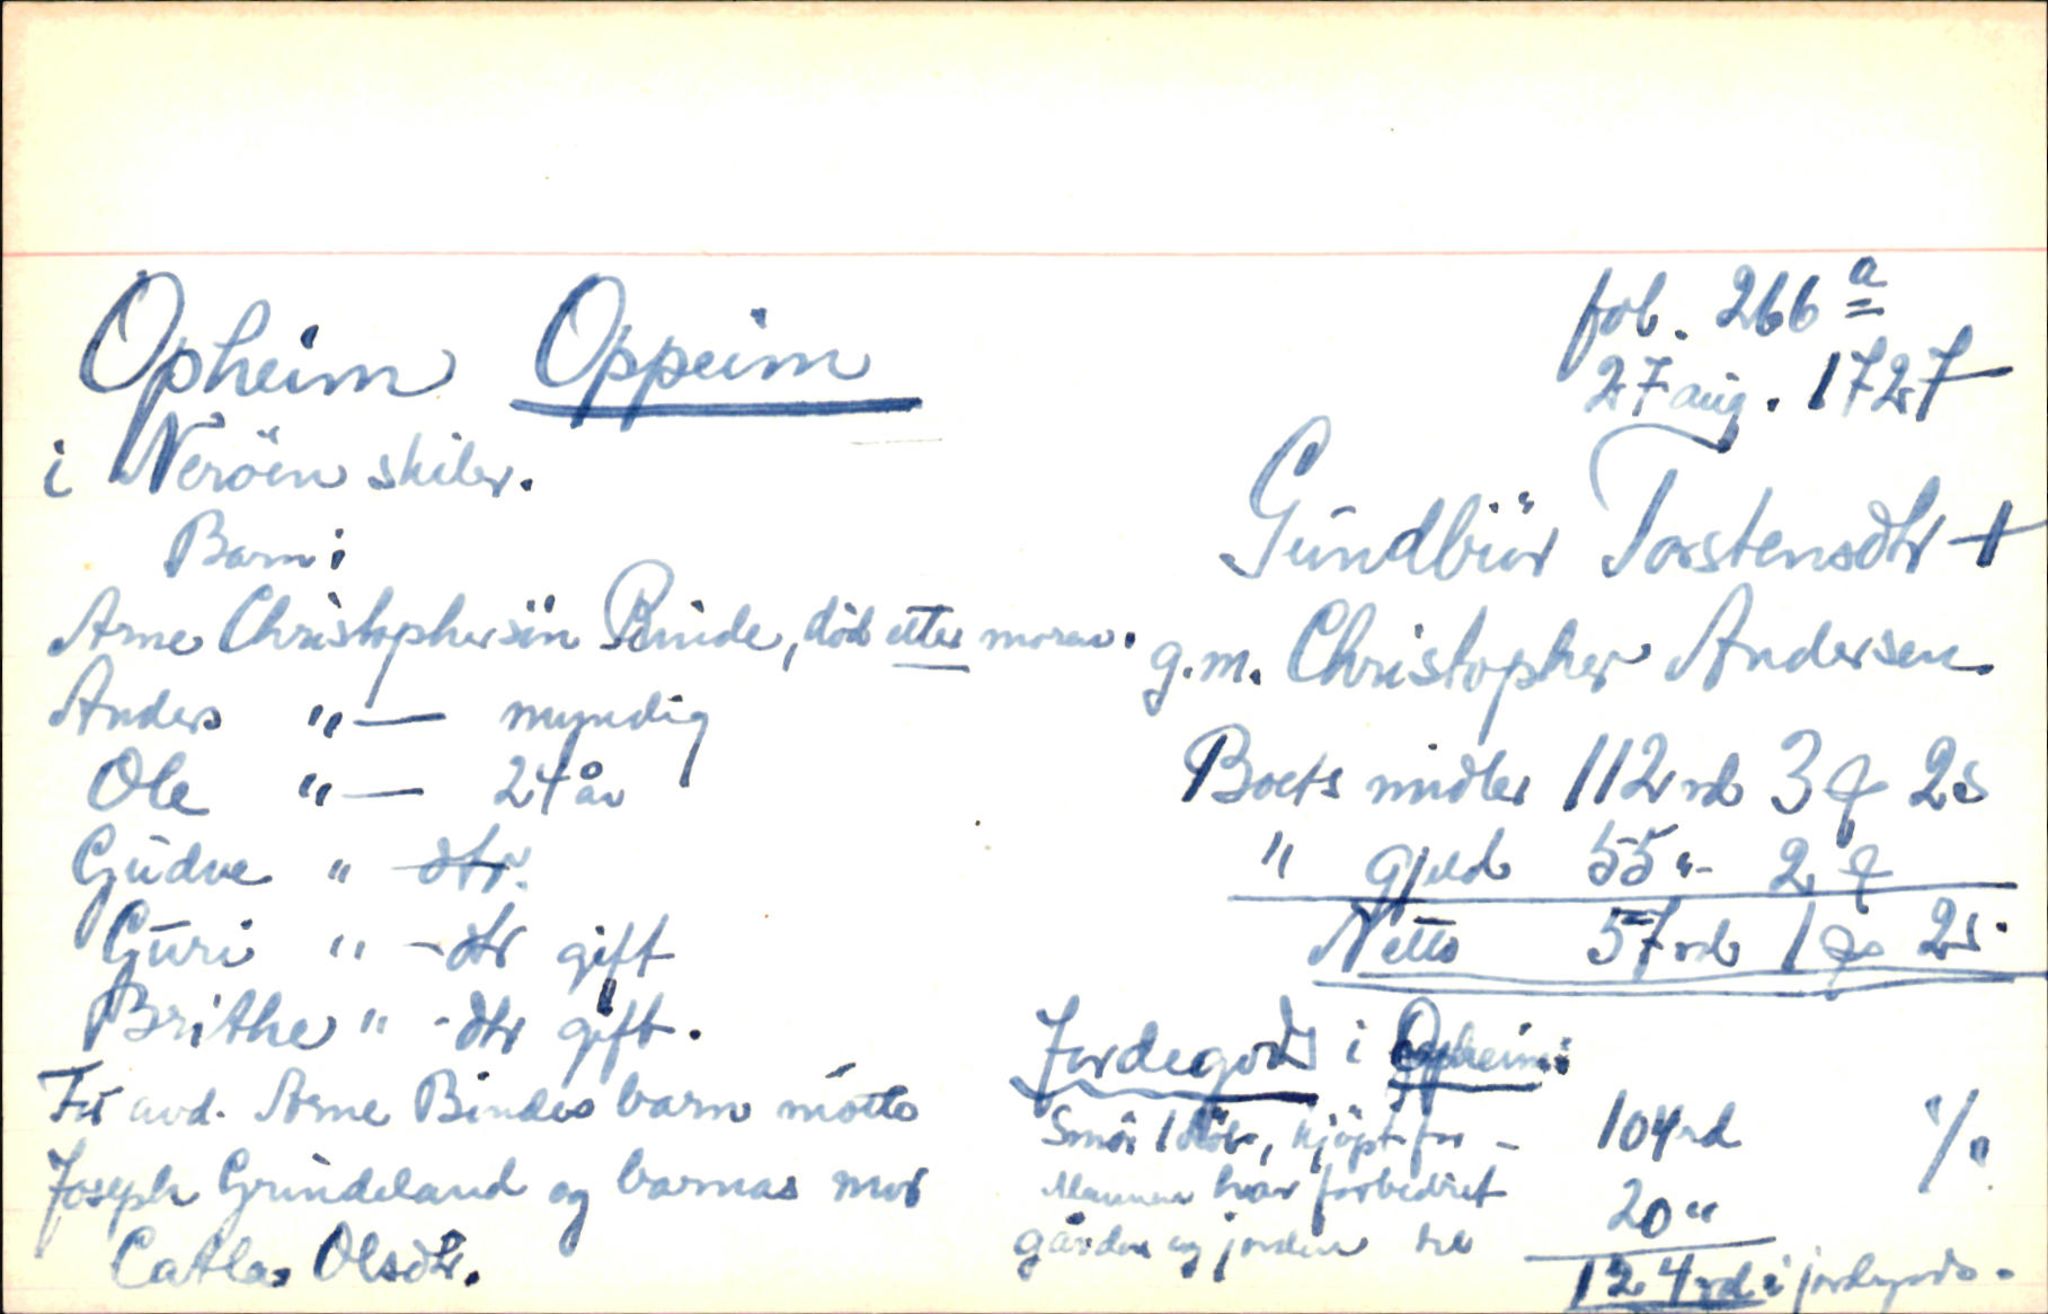 Opheim Oppeim
fol. 266 a
27 aug. 1727
i Neröen skiber.
Gúndbür Torstensdtr +
g.m. Christopher Andersen.
Barn:
Arne Christophersön Binde, död etter moren.
Anders "— myndig
Ole "— 24 år
Gúdve " dtr.
Gúri " -dtr gift
Brithe " -dtr gift.
For avd. Arne Bindes barn mötte
Joseph Grindeland og barnas mor
Catla Olsdtr.
Boets midler 112 rd 3 2 s
" gjeld 55 "- 2
Netto 57 rd 1 2 s.
Jordegods i Opheim:
Smör 1 löb, kjöpt for - 104 rd
Mannen har forbedret
gården og jorden til 20 "
124 rd i jordegods.